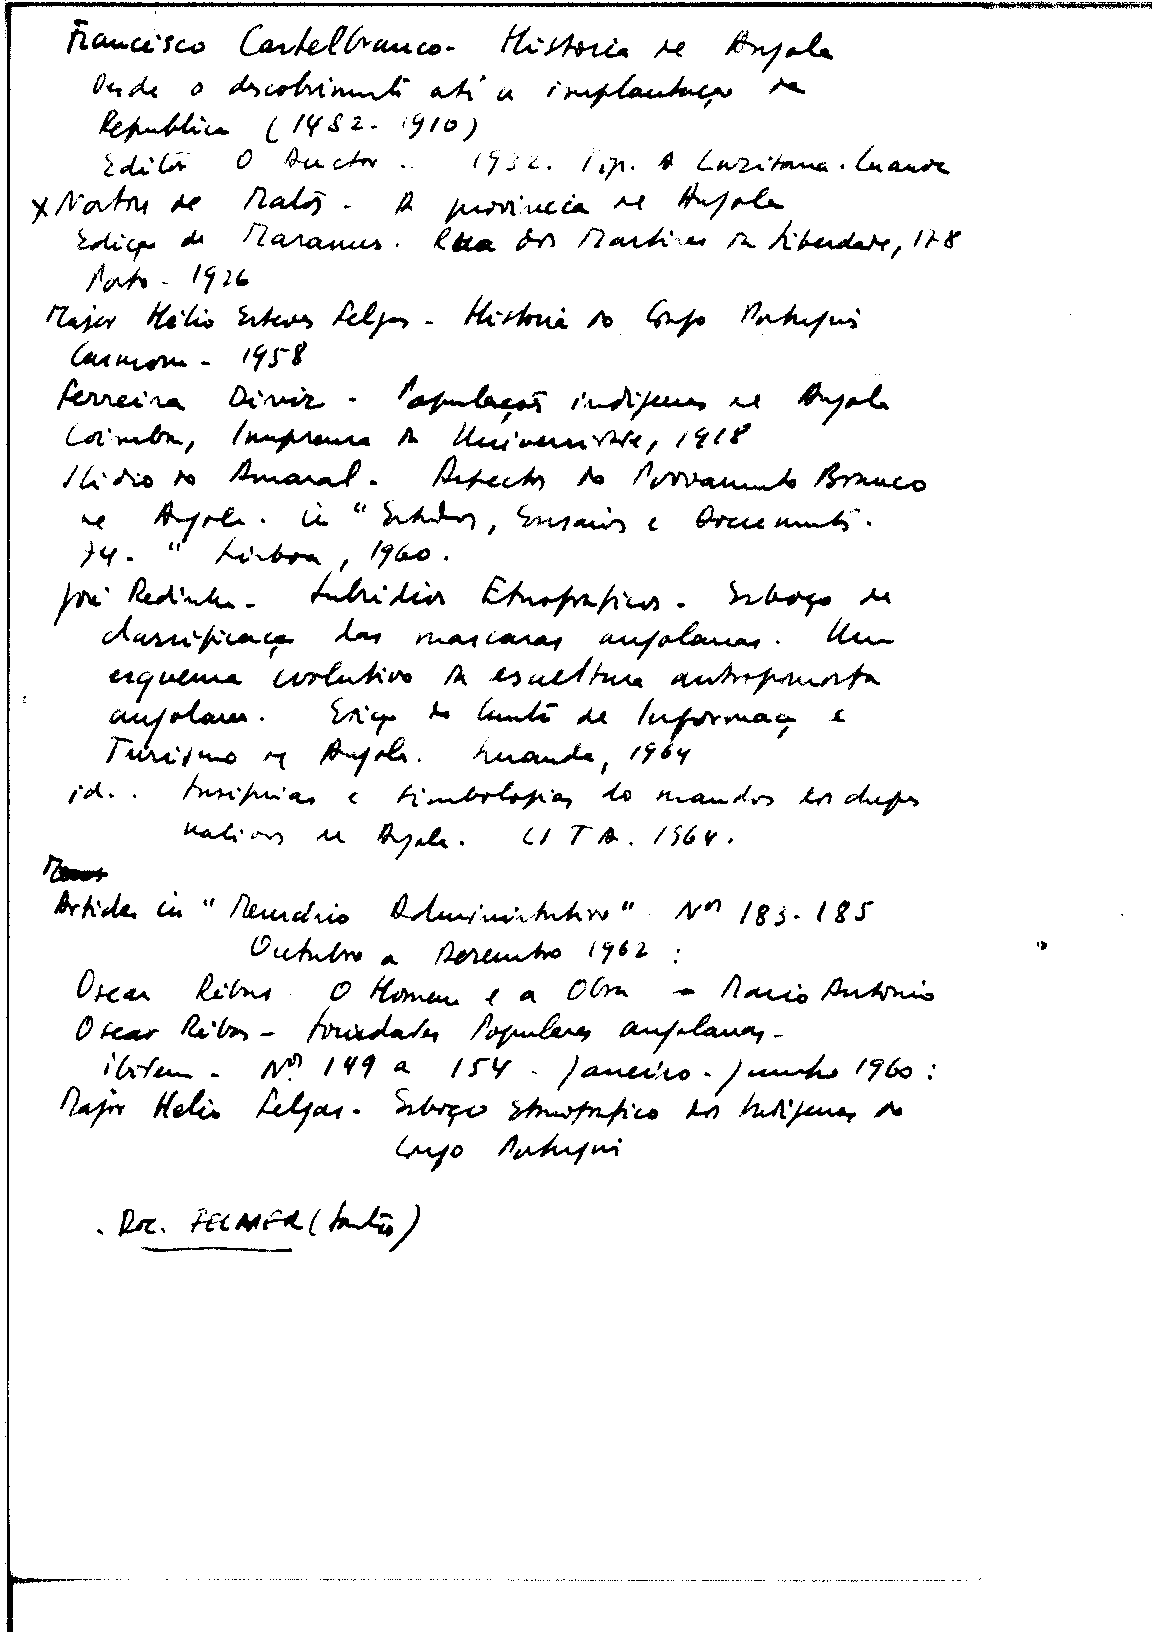 Francisco Castelbranco - Historia de Angola
Desde o descobrimento até a implantação da
Republica (1482-1910)
Editor O Auctor. 1932. Tip. A Luzitana. Luanda
x Norton de Matos - A provincia de Angola
Edição de Maranus. Rua dos Martires da Liberdade, 178
Porto - 1926
Major Hélio Esteves Felgas - Historia do Congo Português
Carmona - 1958
Ferreira Diniz - Populações indigenas de Angola
Coimbra, Imprensa da Universidade, 1918
Ilidio do Amaral - Aspectos do Povoamento Branco
de Angola. in "Estudos, Ensaios e Documentos.
74. " Lisboa, 1960.
José Redinha - Subsidios Etnograficos. Esboço de
classificação das mascaras angolanas. Um
esquema evolutivo da escultura antropomorfa
angolana. Edição do Centro de Informação e
Turismo de Angola. Luanda, 1964
id.. Insignias e simbologias do mando dos chefes
nativos de Angola. CITA. 1964.
Articles in "Mensário Administrativo" Nos 183-185
Outubro a Dezembro 1962 :
Oscar Ribas O Homem e a Obra - Mario António
Oscar Ribas - Sociedades Populares angolanas -
ibidem - Nos. 149 a 154 - Janeiro - Junho 1960 :
Major Helio Felgas - Esboço Etnografico dos Indigenas do
Congo Português
. Doc. FELNER (Santos)